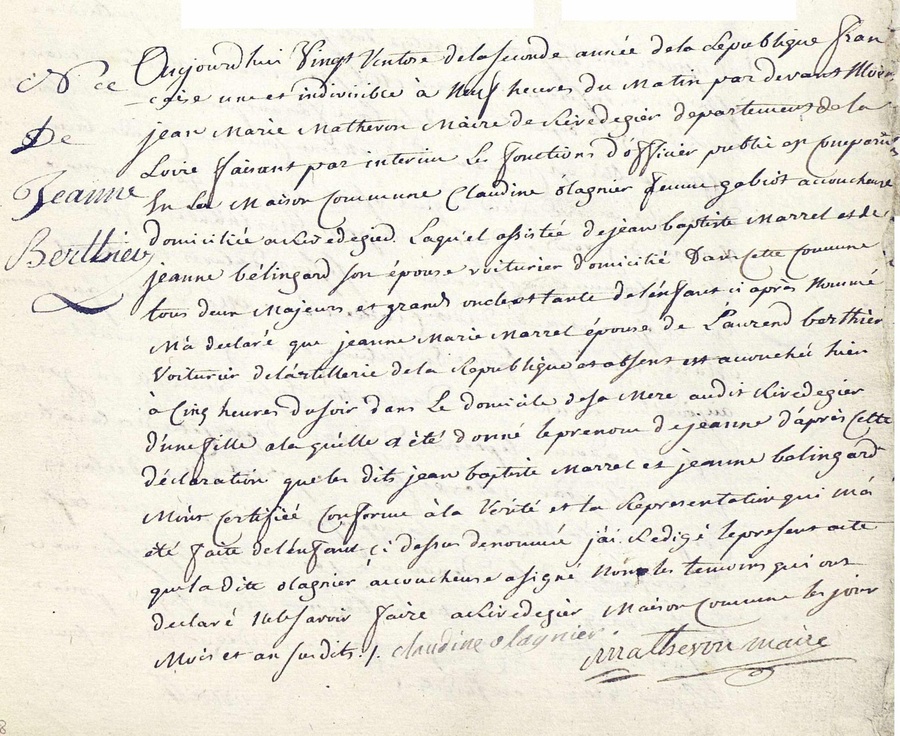 N ce
De
Jeanne
Berthier
Aujourdhui Vingt Ventose de la seconde année de la Republique fran
caise une et indivisible à Neuf heures du Matin par devant Moi
jean Marie Matheron Maire de Rivedegier departement de la
Loire faisant par interim Les fonctions d'officier public est Comparu
En La Maison Commune Claudine olagnier femme gabiot accoucheuse
domiciliée a Rivedegier Laquel assistée de jean baptiste Marrel et de
jeanne bélingard son épouse voiturier domicilié Dans Cette Commune
tous deux Majeurs et grands oncle et tante de lénfant ci après Nommé
M'a declaré que jeanne Marie Marrel épouse de Laurend berthier
Voiturier de lártillerie de la Republique et absent est accouchée hier
à Cinq heures du soir dans Le domicile de sa Mere audit Rivedegier
d'une fille a laquélle a été donné le prenom de jeanne d'après Cette
déclaration que les dits jean baptiste Marrel et jeanne bélingard
Mónt Certifiéé Conforme à la Vérité et la Representation qui má
été faite de lénfant ci dessus denommé j'ai Redigé le present acte
que la dite olagnier accoucheuse a signé Non les temoins qui ont
declaré Ne savoir faire a Rivedegier Maison Commune les jour
Mois et an susdits ./. claudine olagnier
Matheron maire